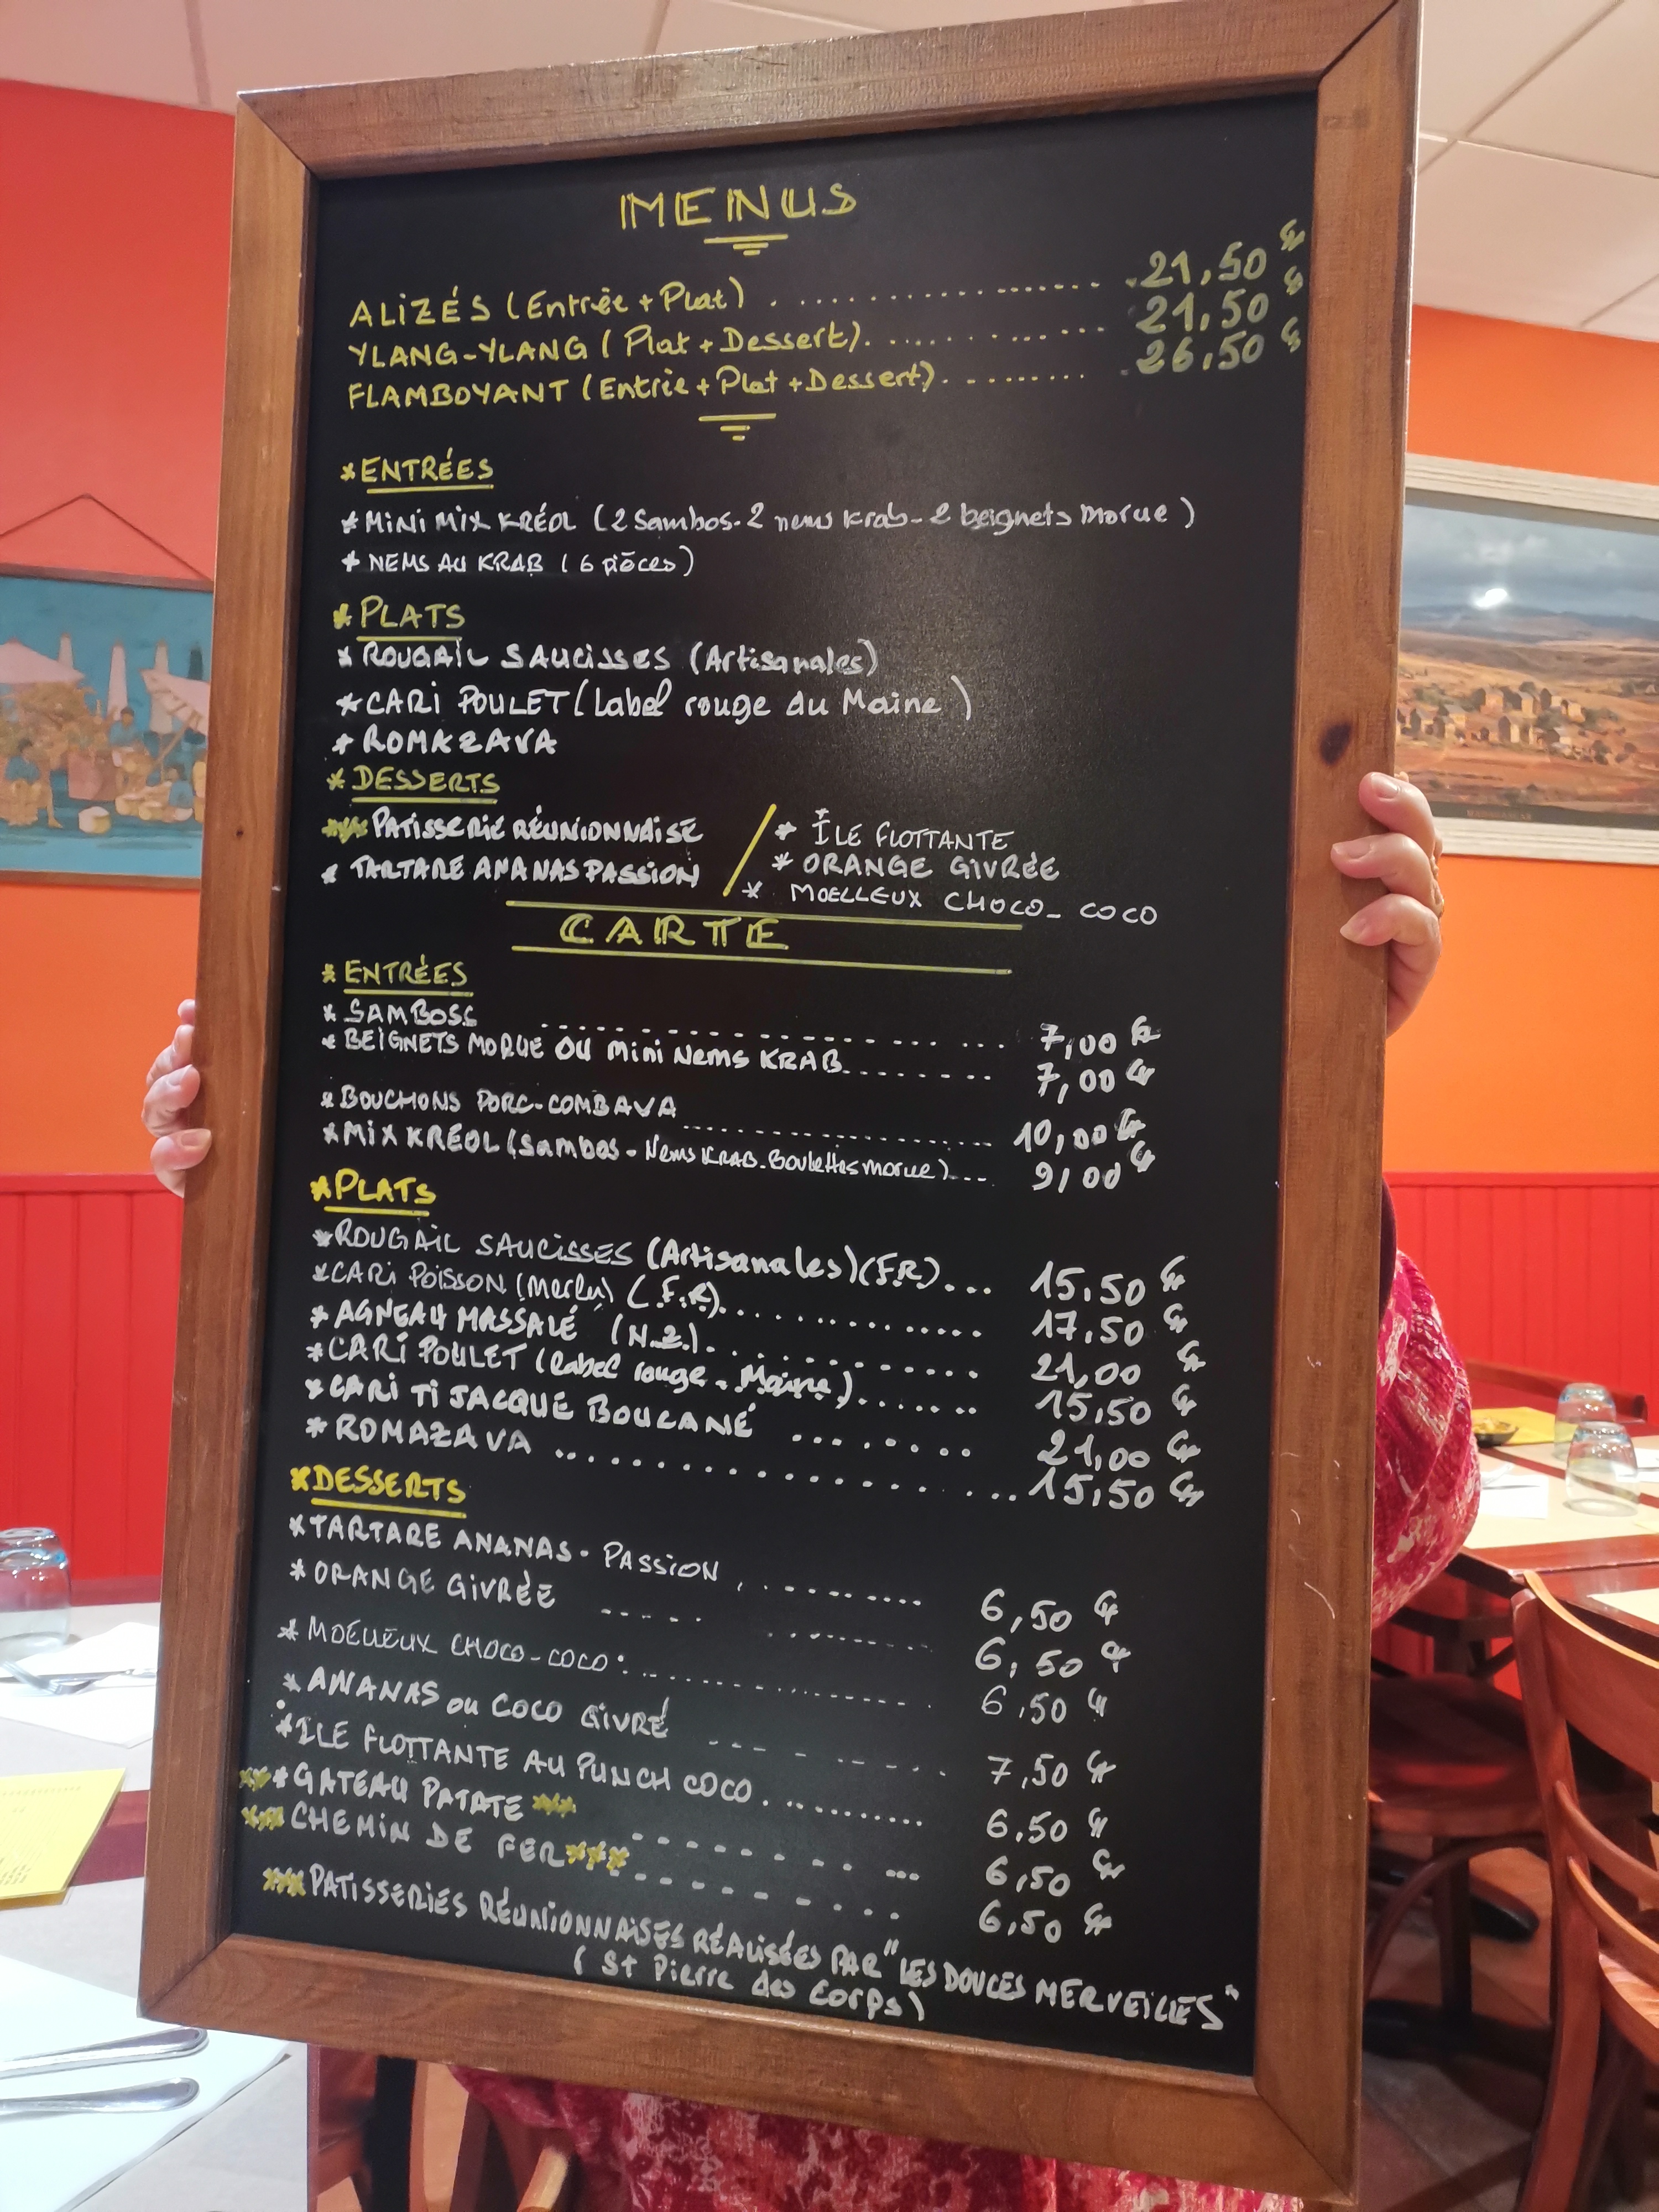 MENUS
ALIZÉS (Entrée + Plat) .................. 21,50 €
YLANG-YLANG (Plat + Dessert)............. 21,50 €
FLAMBOYANT (Entrée + Plat + Dessert)......... 26,50 €
*ENTRÉES
*MINI MIX KRÉOL (2 Sambos-2 nems krab-2 beignets morue)
* NEMS AU KRAB (6 pièces)
*PLATS
* ROUGAIL SAUCISSES (Artisanales)
*CARI POULET (Label rouge du Maine)
* ROMAZAVA
* DESSERTS
*** PATISSERIE RÉUNIONNAISE / * ÎLE FLOTTANTE
* TARTARE ANANAS PASSION * ORANGE GIVRÉE
* MOELLEUX CHOCO-COCO
CARTE
*ENTRÉES
* SAMBOSS .................. 7,00 €
* BEIGNETS MORUE OU mini Nems KRAB......... 7,00 €
*BOUCHONS PORC-COMBAVA .................. 10,00 €
*MIX KRÉOL (Sambos-Nems KRAB-Boulettes morue)... 9,00 €
*PLATS
*ROUGAIL SAUCISSES (Artisanales)(F.R)... 15,50 €
*CARI POISSON (Merlu) (F.R)............. 17,50 €
* AGNEAU MASSALÉ (N.Z.)............. 21,00 €
*CARI POULET (Label rouge - Maine)....... 15,50 €
*CARI TI JACQUE BOUCANÉ ........ 21,00 €
* ROMAZAVA .................. 15,50 €
*DESSERTS
*TARTARE ANANAS - PASSION ......... 6,50 €
* ORANGE GIVRÉE .............. 6,50 €
* MOELLEUX CHOCO-COCO: .............. 6,50 €
* ANANAS ou COCO GIVRÉ ......... 7,50 €
*ILE FLOTTANTE AU PUNCH COCO .......... 6,50 €
***GATEAU PATATE *** .......... 6,50 €
*** CHEMIN DE FER*** ......... 6,50 €
***PATISSERIES RÉUNIONNAISES RÉALISÉES PAR "LES DOUCES MERVEILLES"
(St Pierre des Corps)